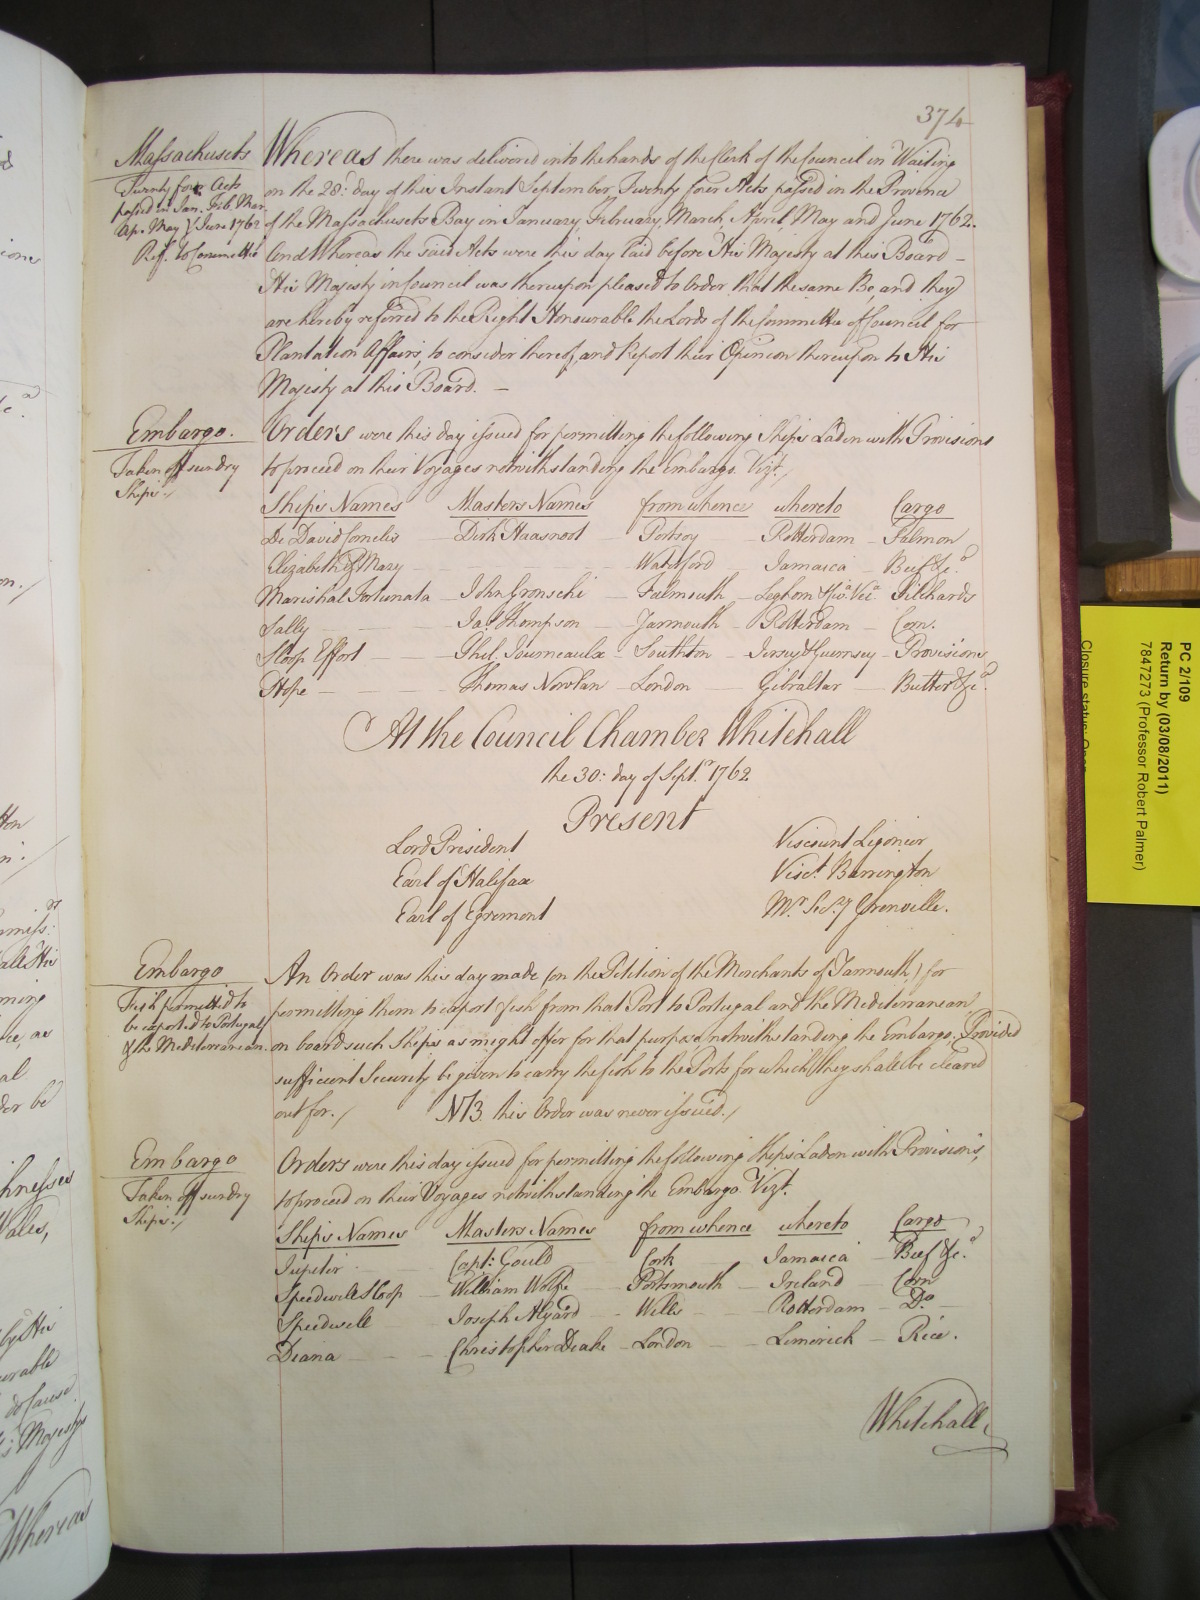 374
Massachusets
Twenty four Acts
passed in Jan. Feb. Mar.
Ap. May & June 1762
Ref.d to Committee
Whereas there was delivered into the hands of the Clerk of the Council in Waiting
on the 28.th day of this Instant September Twenty four Acts passed in the Province
of the Massachusets Bay in January, February, March, April, May and June 1762.
And Whereas the said Acts were this day laid before His Majesty at this Board —
His Majesty in Council was thereupon pleased to Order that the same Be, and they
are hereby referred to the Right Honourable the Lords of the Committee of Council for
Plantation Affairs, to consider thereof, and Report their Opinion thereupon to His
Majesty at this Board. —
Embargo.
Taken off sundry
Ships./
Orders were this day issued for permitting the following Ships Laden with Provisions
to proceed on their Voyages notwithstanding the Embargo. Vizt./
Ships Names Masters Names from whence whereto Cargo
De David Cornelis — Dirk Haasnoot — Portsoy — Rotterdam — Salmon
Elizabeth & Mary — Waterford Jamaica — Beef &c.a
Marishal Fortunata — John Gronschi — Falmouth — Leghorn & Civ.a Vec.a Pilchards
Sally — Ja.s Thompson — Yarmouth — Rotterdam — Corn.
Sloop Effort — Phil. Journeaulx — Southton — Jersey & Guernsey — Provisions
Hope — Thomas Nowlan — London — Gibraltar — Butter &c.a
At the Council Chamber Whitehall
the 30.th day of Sept.r 1762
Present
Lord President Viscount Ligonier
Earl of Halifax Visc.t Barrington
Earl of Egremont M.r Sec.ry Grenville.
Embargo
Fish permitted to
be exported to Portugal
& the Mediterranean.
An Order was this day made (on the Petition of the Merchants of Yarmouth) for
permitting them to export Fish from that Port to Portugal and the Mediterranean,
on board such Ships as might offer for that purpose, notwithstanding the Embargo; Provided
sufficient Security be given to carry the fish to the Ports for which they shall be cleared
out for./ NB. this Order was never issued./
Embargo
Taken off sundry
Ships./
Orders were this day issued for permitting the following Ships Laden with Provisions,
to proceed on their Voyages notwithstanding the Embargo Vizt.
Ships Names Masters Names from whence whereto Cargo
Jupiter — Capt: Gould — Cork — Jamaica — Beef &c.a
Speedwell Sloop — William Wolfe — Portsmouth — Ireland — Corn
Speedwell Joseph Alyard — Wells — Rotterdam — D.o
Diana — Christopher Deake — London — Limerick — Rice.
Whitehall
Whereas
PC 2/109
Return by (03/08/2011)
7847273 (Professor Robert Palmer)
Closure status: Open